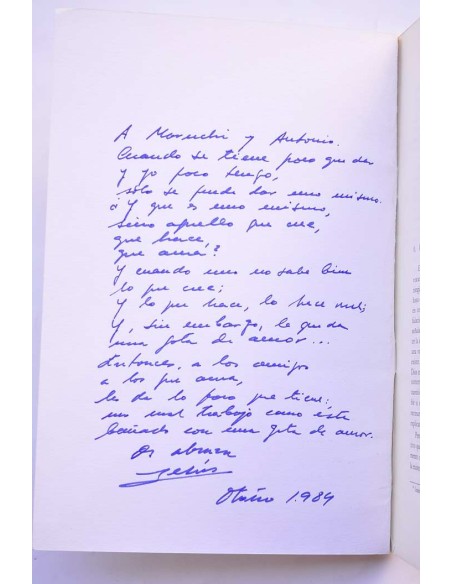 A Maruchi y Antonio.
Cuando se tiene poco que dar
y yo poco tengo,
sólo se puede dar uno mismo.
¿Y que es uno mismo,
sino aquello que cree,
que hace,
que ama?
Y cuando uno no sabe bien
lo que cree;
y lo que hace, lo hace mal;
y, sin embargo, le queda
una gota de amor...
Entonces, a los amigos
a los que ama,
les da lo poco que tiene;
un mal trabajo como este
bañado con una gota de amor.
Os abraza
Jesús
Otoño 1.984